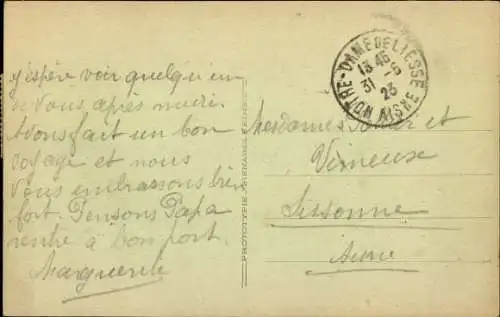 J'espère voir quelqu'un
de vous, après midi.
Avons fait un bon
voyage et nous
vous embrassons bien
fort. Pensons Papa
rentré à bon port.
Marguerite
NOTRE-DAME DE LIESSE
13 45
31 -5
23
AISNE
Mesdames et
Vimeux
Sissonne
Aisne